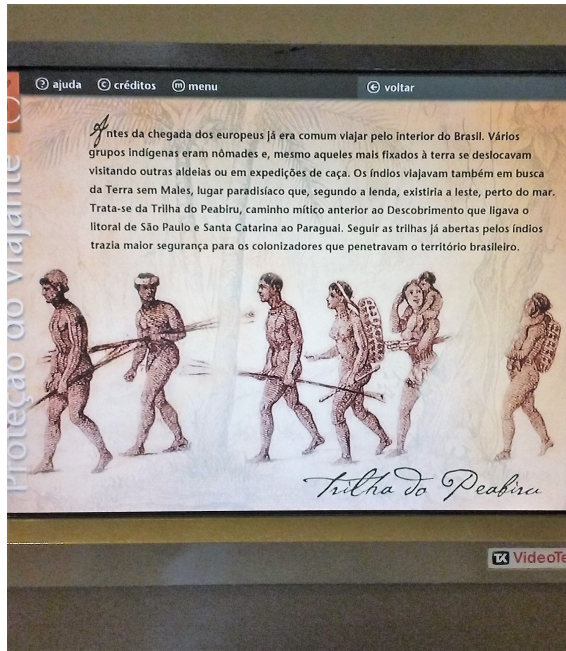 ajuda
créditos
menu
voltar
Proteção do Viajante
Antes da chegada dos europeus já era comum viajar pelo interior do Brasil. Vários
grupos indígenas eram nômades e, mesmo aqueles mais fixados à terra se deslocavam
visitando outras aldeias ou em expedições de caça. Os índios viajavam também em busca
da Terra sem Males, lugar paradisíaco que, segundo a lenda, existiria a leste, perto do mar.
Trata-se da Trilha do Peabiru, caminho mítico anterior ao Descobrimento que ligava o
litoral de São Paulo e Santa Catarina ao Paraguai. Seguir as trilhas já abertas pelos índios
trazia maior segurança para os colonizadores que penetravam o território brasileiro.
Trilha do Peabiru
VideoTe